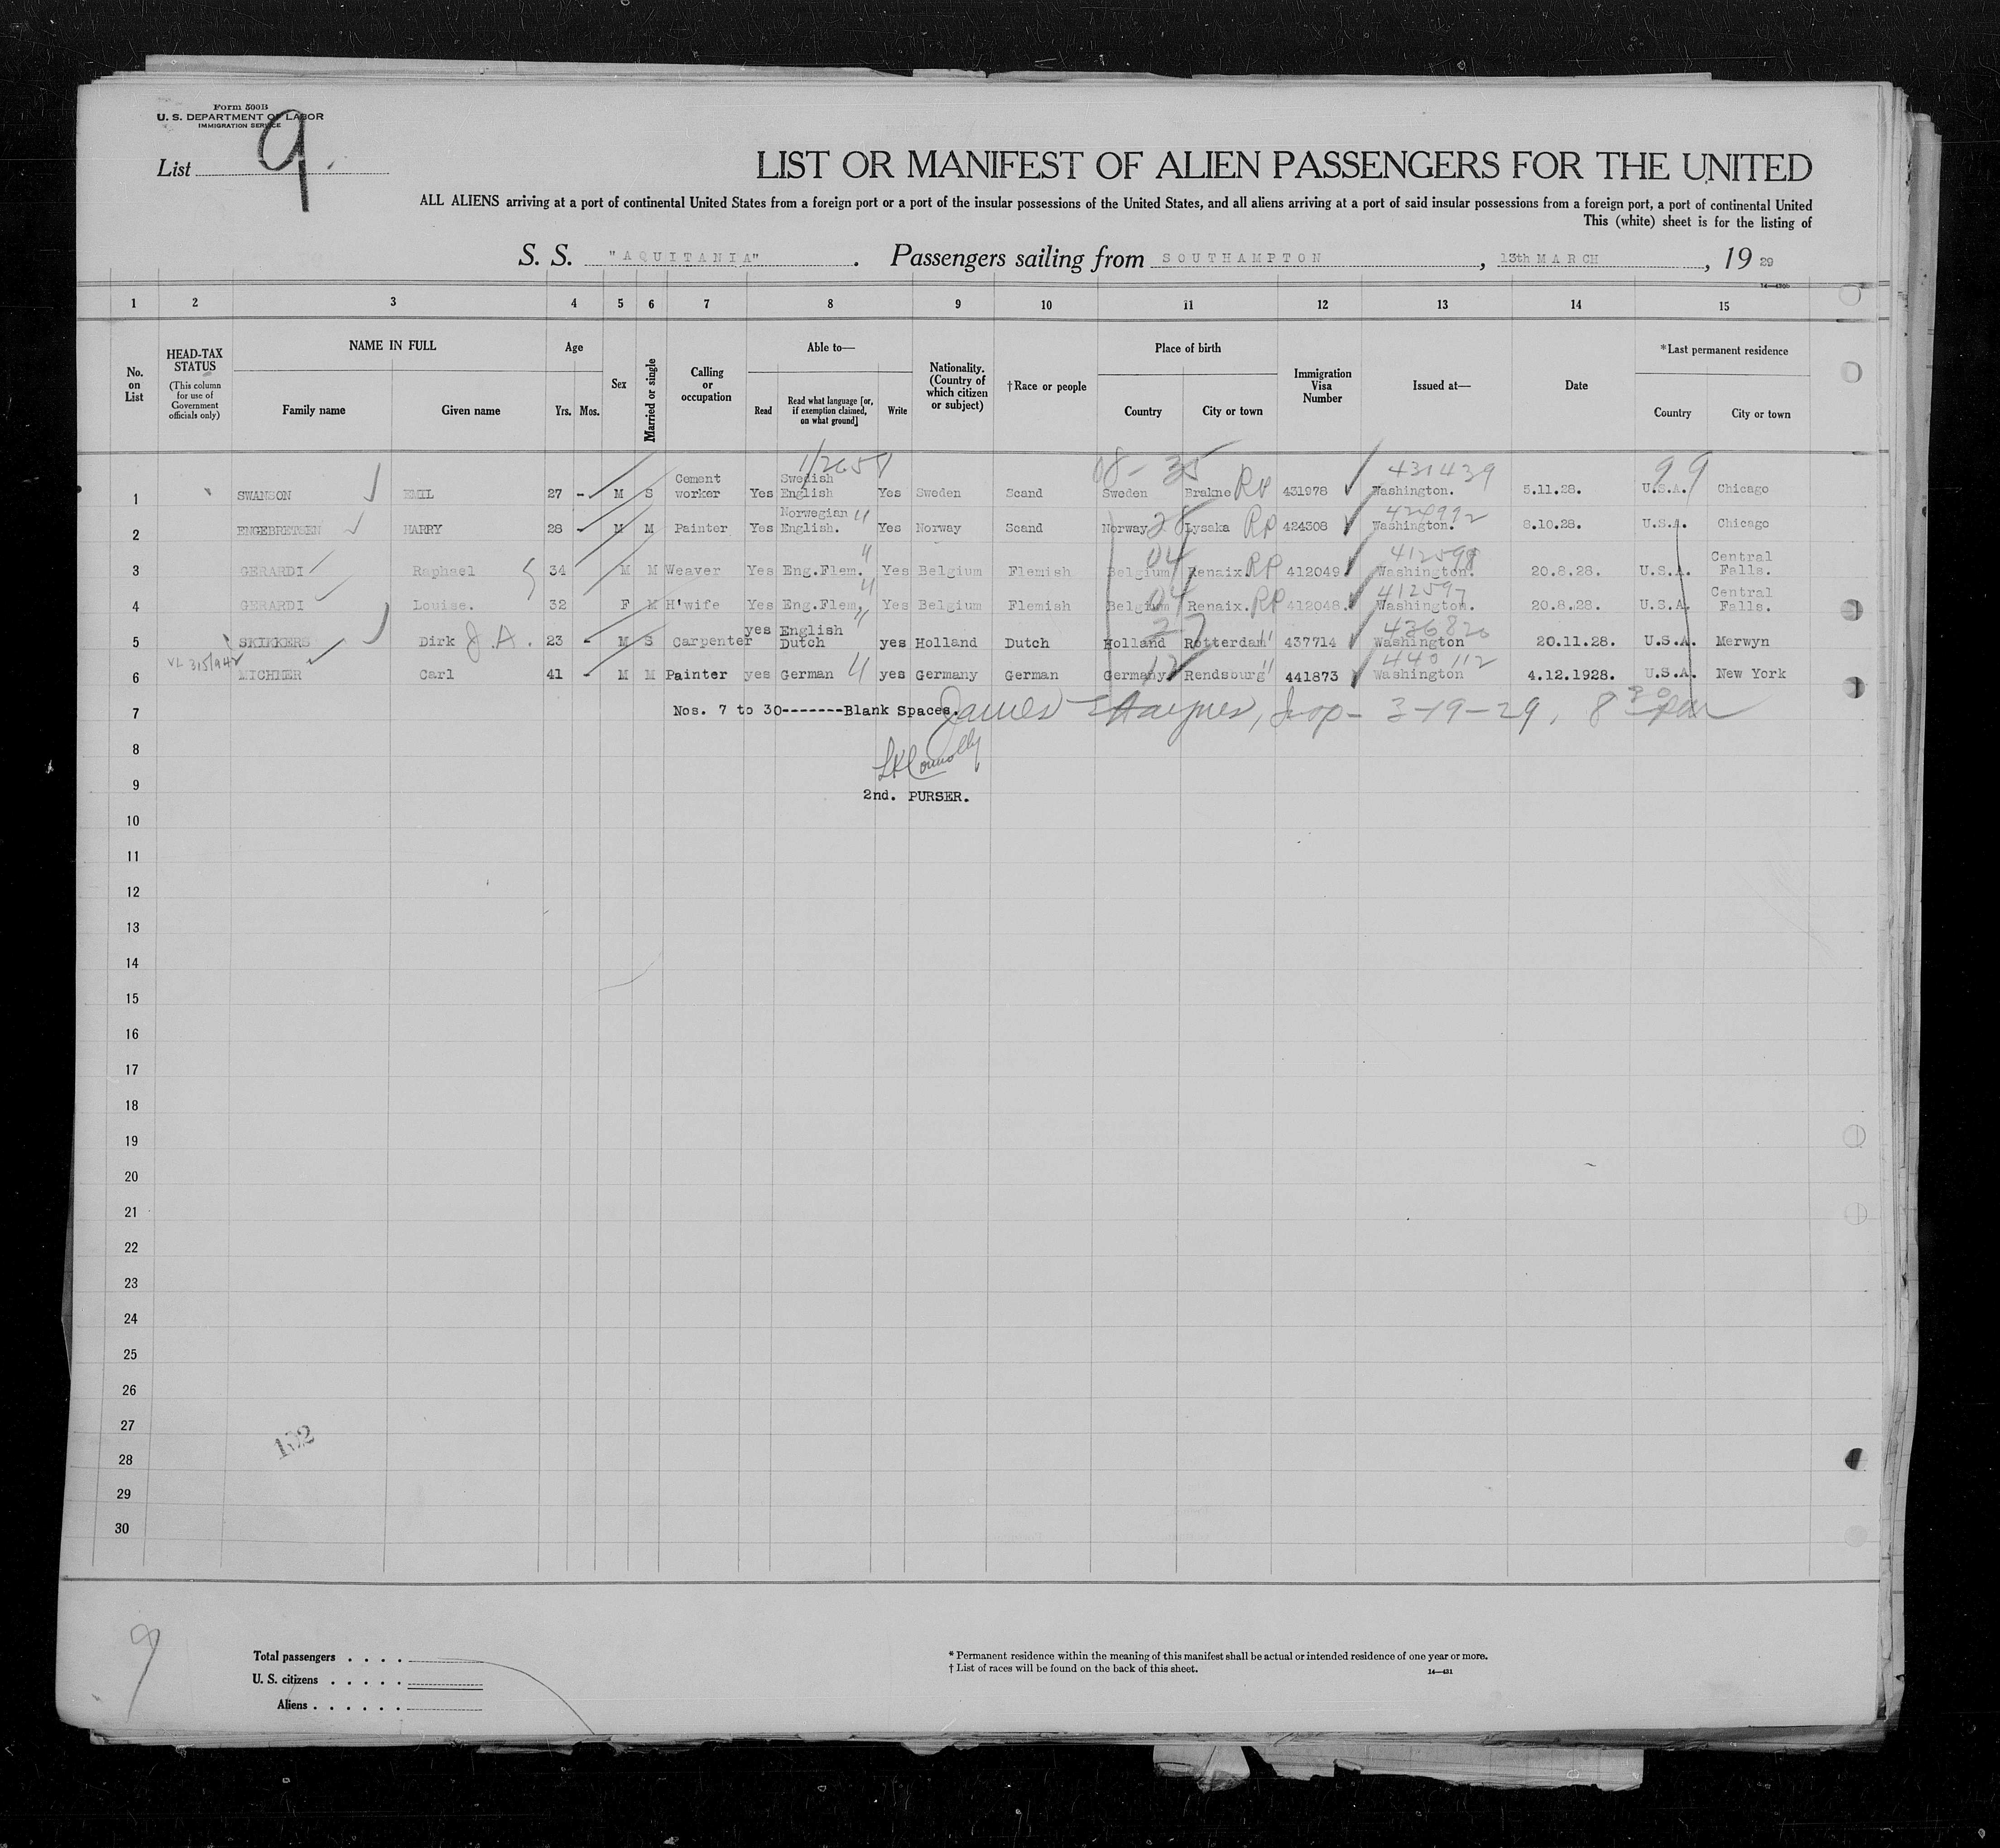 Form 500B
U. S. DEPARTMENT OF LABOR
IMMIGRATION SERVICE
List 9.
LIST OR MANIFEST OF ALIEN PASSENGERS FOR THE UNITED
ALL ALIENS arriving at a port of continental United States from a foreign port or a port of the insular possessions of the United States, and all aliens arriving at a port of said insular possessions from a foreign port, a port of continental United
This (white) sheet is for the listing of
S. S. "AQUITANIA". Passengers sailing from SOUTHAMPTON, 13th MARCH, 19 29
1 2 3 4 5 6 7 8 9 10 11 12 13 14 15
No. on List
HEAD-TAX STATUS (This column for use of Government officials only)
NAME IN FULL
Family name Given name
Age
Yrs. Mos.
Sex
Married or single
Calling or occupation
Able to—
Read Read what language [or, if exemption claimed, on what ground] Write
Nationality. (Country of which citizen or subject)
†Race or people
Place of birth
Country City or town
Immigration Visa Number
Issued at—
Date
*Last permanent residence
Country City or town
1 SWANSON EMIL 27 - M S Cement worker Yes Swedish English Yes Sweden Scand Sweden 08-35 Brakne RP 431978 431439 Washington. 5.11.28. U.S.A. 99 Chicago
2 ENGEBRETSEN HARRY 28 M M Painter Yes Norwegian English. Yes Norway Scand Norway Lysaka RP 424308 424992 Washington. 8.10.28. U.S.A. Chicago
3 GERARDI Raphael 34 M M Weaver Yes Eng.Flem. " Yes Belgium Flemish Belgium 04 Renaix RP 412049 412598 Washington. 20.8.28. U.S.A. Central Falls.
4 GERARDI Louise. 32 F M H'wife Yes Eng.Flem. " Yes Belgium Flemish Belgium 04 Renaix. RP 412048. 412597 Washington. 20.8.28. U.S.A. Central Falls.
5 SKIKKERS Dirk J.A. 23 - M S Carpenter yes English Dutch " yes Holland Dutch Holland 27 Rotterdam " 437714 436820 Washington 20.11.28. U.S.A. Merwyn
6 MICHNER Carl 41 - M M Painter yes German " yes Germany German Germany 12 Rendsburg " 441873 440112 Washington 4.12.1928. U.S.A. New York
7 Nos. 7 to 30-------Blank Spaces. James Haynes, Insp- 3-19-29, 8 30 pm
8 LKConnolly
9 2nd. PURSER.
10
11
12
13
14
15
16
17
18
19
20
21
22
23
24
25
26
27
28
29
30
9
Total passengers . . . .
U. S. citizens . . . . .
Aliens . . . . . .
* Permanent residence within the meaning of this manifest shall be actual or intended residence of one year or more.
† List of races will be found on the back of this sheet.
14—431